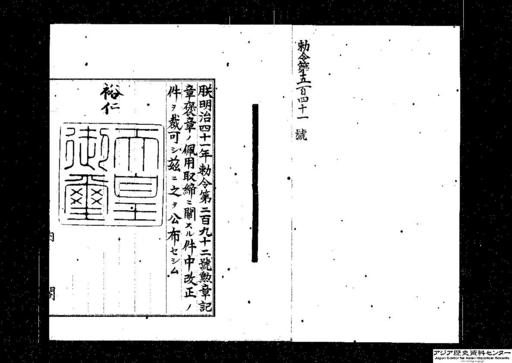 勅令第五百四十一號
朕明治四十一年勅令第二百九十二號勲章記
章褒章ノ佩用取締ニ關スル件中改正ノ
件ヲ裁可シ茲ニ之ヲ公布セシム
裕仁
天皇
御璽
内閣
アジア歴史資料センター
Japan Center for Asian Historical Records